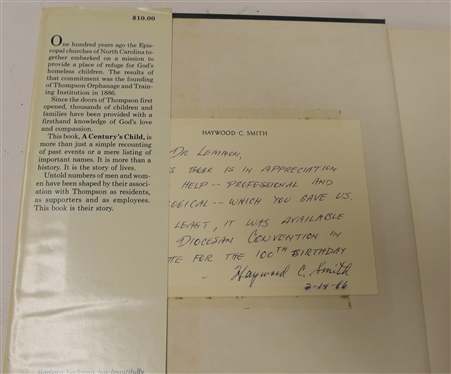 $10.00
One hundred years ago the Epis-
copal churches of North Carolina to-
gether embarked on a mission to
provide a place of refuge for God's
homeless children. The results of
that commitment was the founding
of Thompson Orphanage and Train-
ing Institution in 1886.
Since the doors of Thompson first
opened, thousands of children and
families have been provided with a
firsthand knowledge of God's love
and compassion.
This book, A Century's Child, is
more than just a simple recounting
of past events or a mere listing of
important names. It is more than a
history. It is the story of lives.
Untold numbers of men and wo-
men have been shaped by their associ-
ation with Thompson as residents,
as supporters and as employees.
This book is their story.
HAYWOOD C. SMITH
DR LEMMON,
BOOK IS IN APPRECIATION
HELP -- PROFESSIONAL AND
LOGICAL -- WHICH YOU GAVE US.
LEAST, IT WAS AVAILABLE
DIOCESAN CONVENTION IN
TE FOR THE 100TH BIRTHDAY
- Haywood C. Smith
2-14-86
beautifully